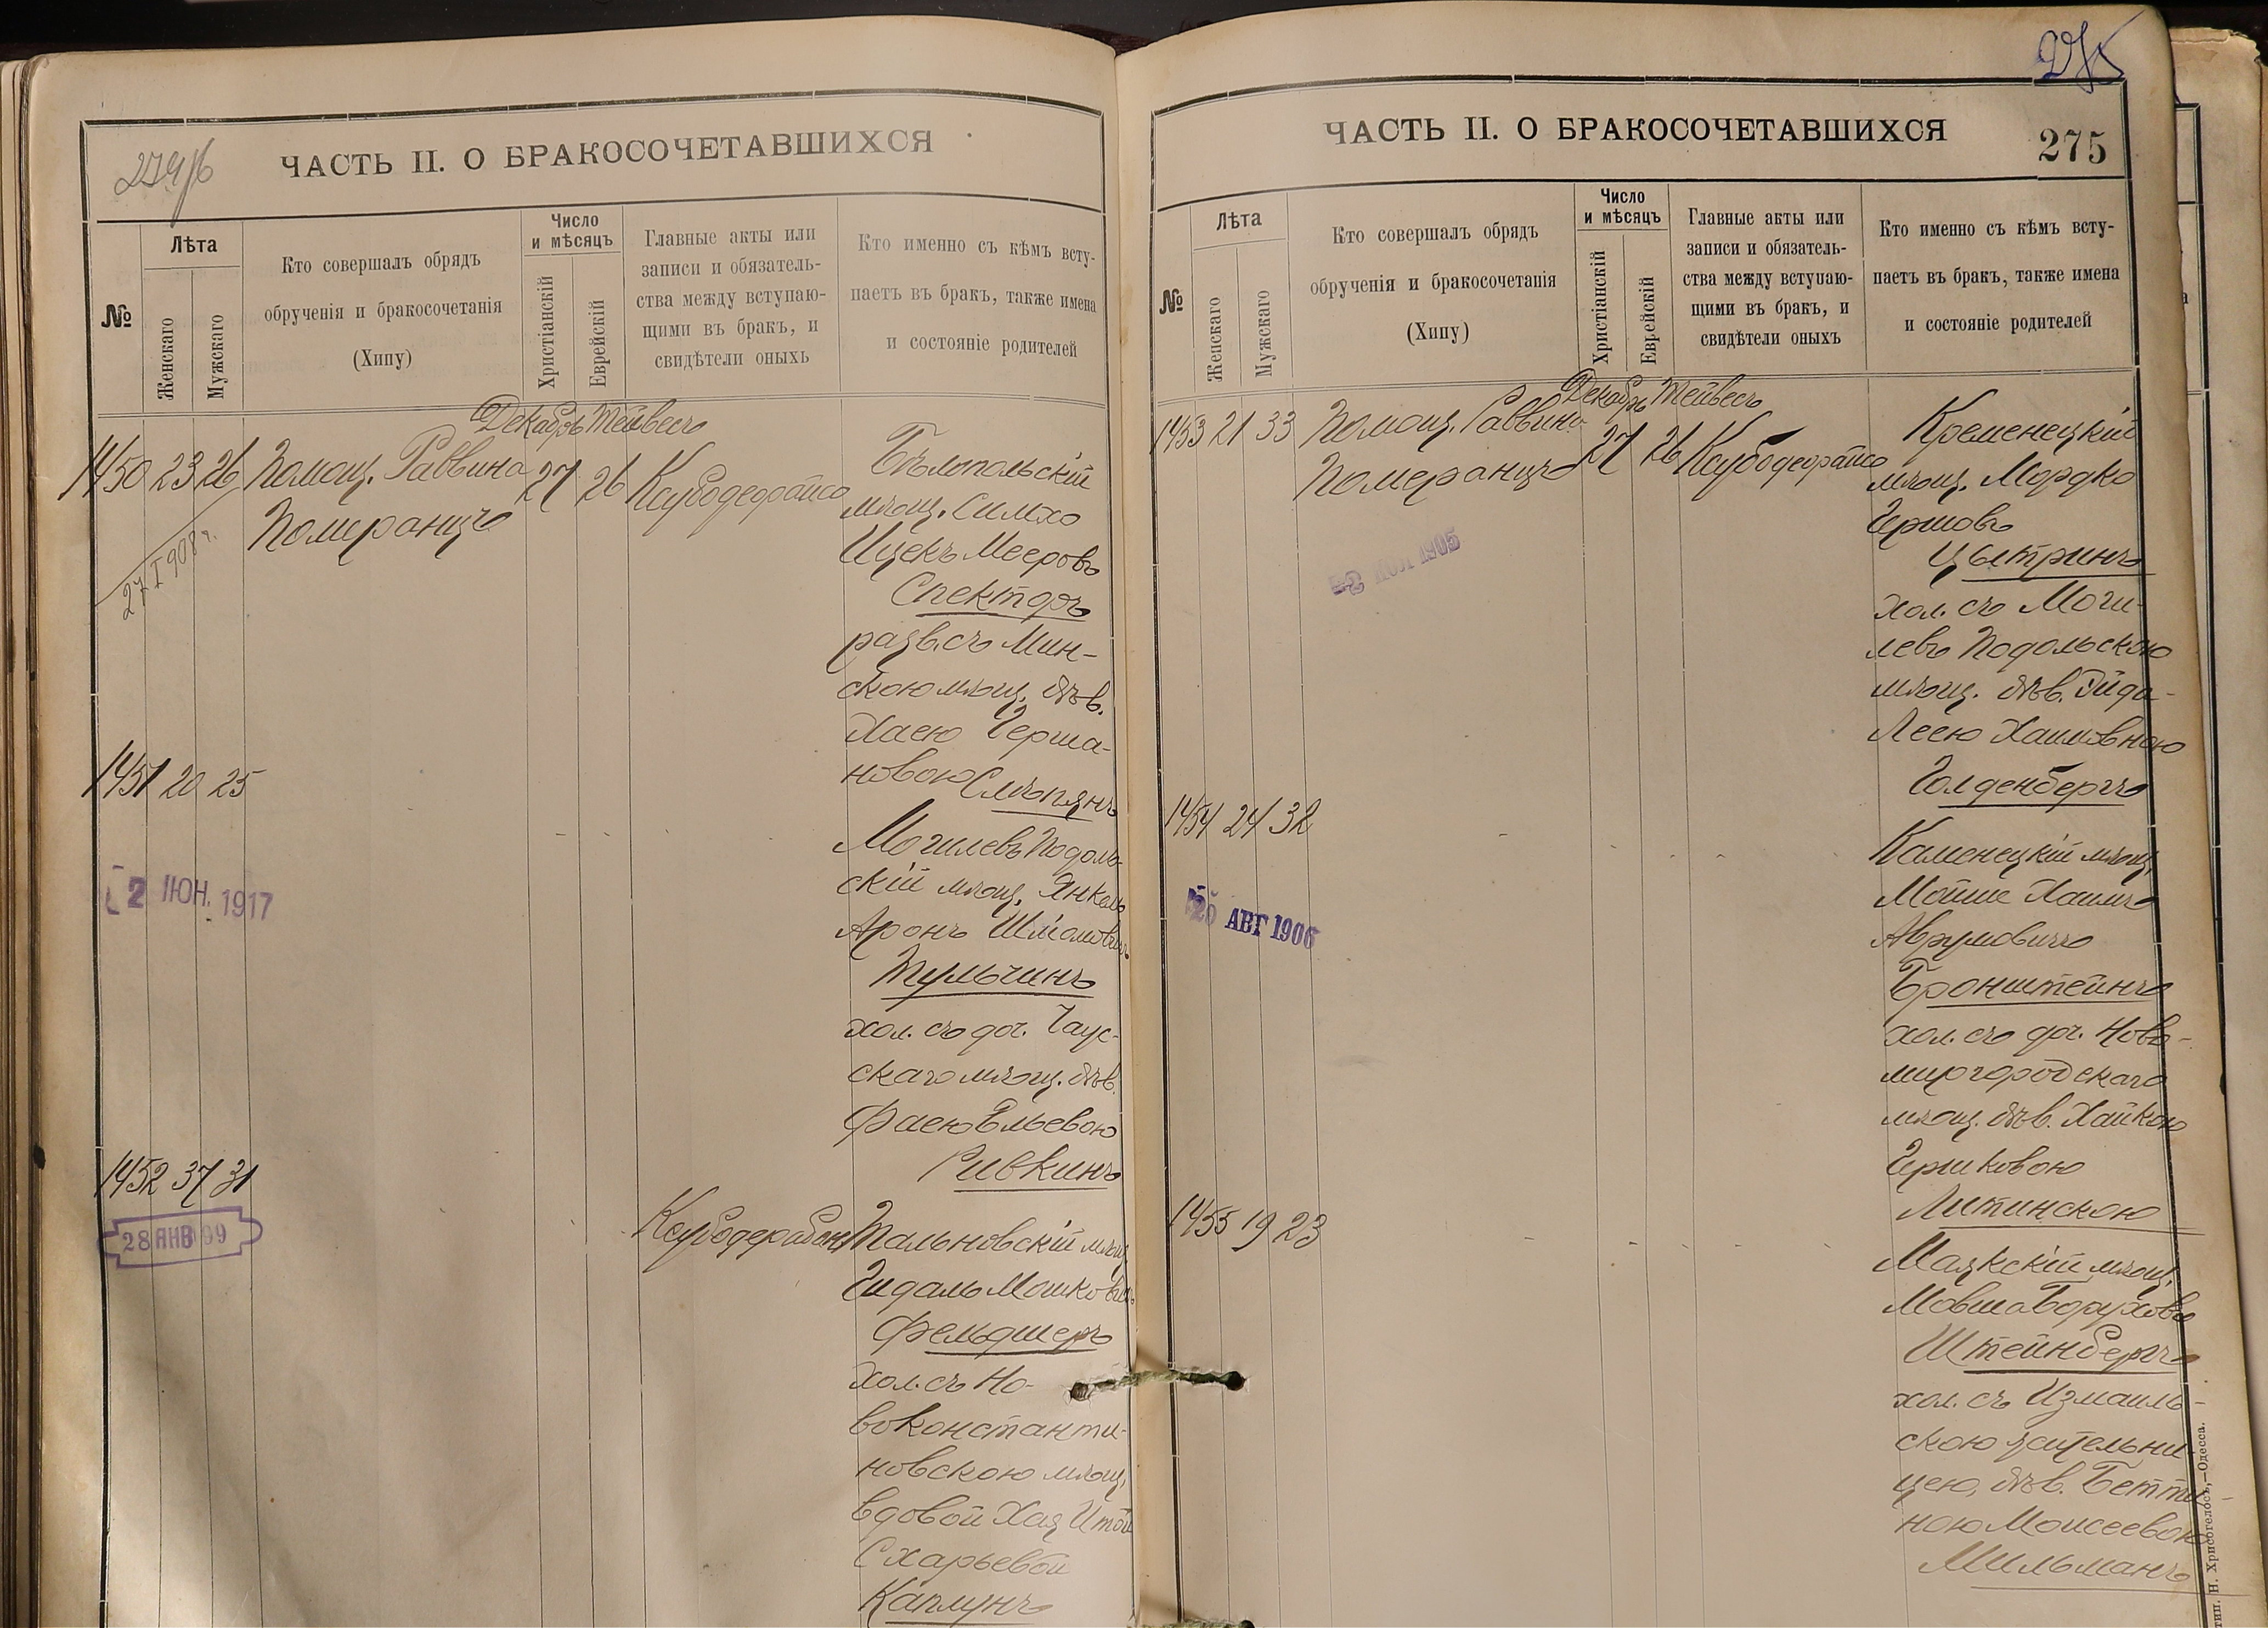 274/б
ЧАСТЬ II. О БРАКОСОЧЕТАВШИХСЯ
№
Лѣта
Женскаго
Мужскаго
Кто совершалъ обрядъ
обрученія и бракосочетанія
(Хипу)
Число
и мѣсяцъ
Христіанскій
Еврейскій
Главные акты или
записи и обязатель-
ства между вступаю-
щими въ бракъ, и
свидѣтели оныхъ
Кто именно съ кѣмъ всту-
паетъ въ бракъ, также имена
и состояніе родителей
Декабрь Тейвесъ
1450 23 26 Помощ. Раввина 27 26
Померанцъ
27 I 908 г.
Бѣлопольскій
мѣщ. Симхо
Ицекъ Мееровъ
Спекторъ
разв. съ Мин-
скою мѣщ. дѣв.
Хаею Герша-
новою Слѣпянъ
1451 20 25
2 ІЮН. 1917
Могилевъ Подоль-
скій мѣщ. Янкель
Аронъ
Тульчинъ
хол. съ доч. Чаус-
скаго мѣщ. дѣв.
Фаею Ельевою
Ривкинъ
1452 37 31
28 ЯНВ 99
Тальновскій мѣщ.
Гидаль
Фельдшеръ
хол. съ Но-
воконстанти-
новскою мѣщ.
вдовой Хая Итой
Схарьевой
Каплунъ
275
ЧАСТЬ II. О БРАКОСОЧЕТАВШИХСЯ
275
№
Лѣта
Женскаго
Мужскаго
Кто совершалъ обрядъ
обрученія и бракосочетанія
(Хипу)
Число
и мѣсяцъ
Христіанскій
Еврейскій
Главные акты или
записи и обязатель-
ства между вступаю-
щими въ бракъ, и
свидѣтели оныхъ
Кто именно съ кѣмъ всту-
паетъ въ бракъ, также имена
и состояніе родителей
Декабрь Тейвесъ
1453 21 33 Помощ. Раввина 27 26
Померанцъ
1905
Кременецкій
мѣщ. Мордко
Гершовъ
Цытринъ
хол. съ Моги-
левъ Подольскою
мѣщ. дѣв.
Леею Хаимовною
Голденбергъ
1454 24 32
АВГ 1906
Каменецкій мѣщ.
Мойше Хаимъ
Аврумовичъ
Бронштейнъ
хол. съ доч. Ново-
миргородскаго
мѣщ. дѣв. Хайкою
Гершковою
Литинскою
1455 19 23
Маякскій мѣщ.
Мовша Боруховъ
Штейнбергъ
хол. съ Измаиль-
скою жительни-
цею, дѣв. Бетти-
ною Моисеевою
Мильманъ
тип. Н. Хрисогелосъ,—Одесса.